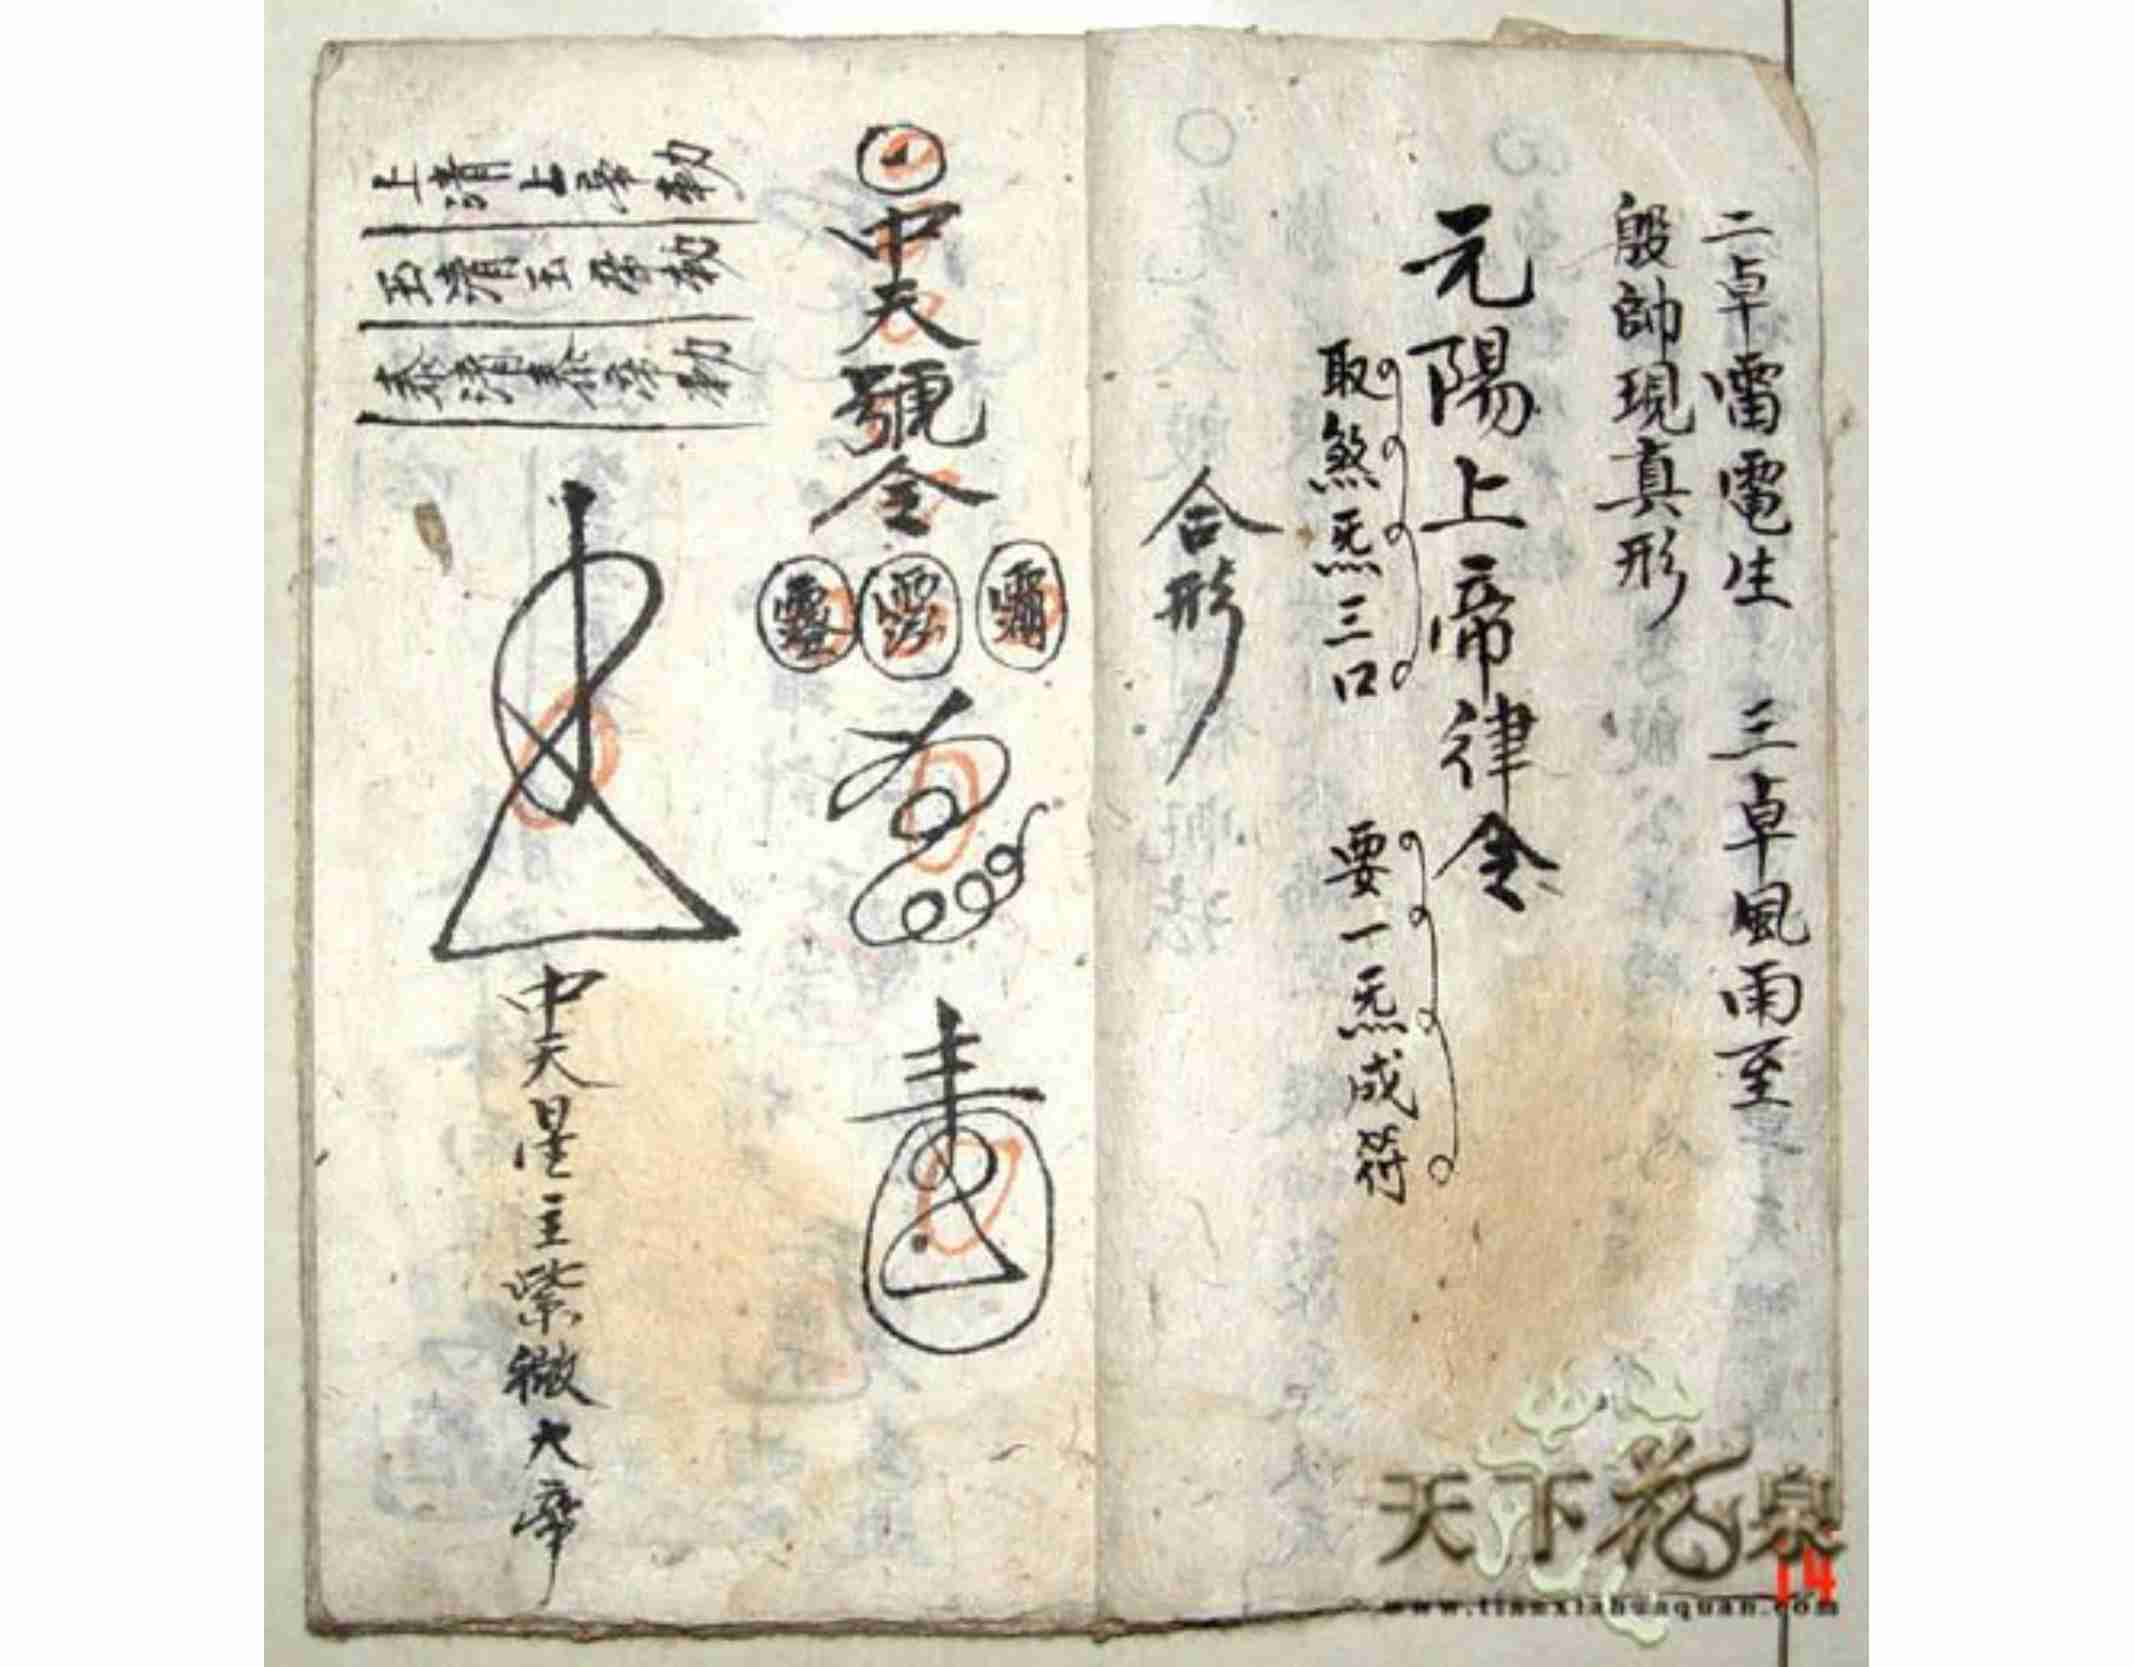 二卓雷電生 三卓風雨至
殷帥現真形
元陽上帝律令
取煞炁三口 要一炁成符
合形
中天號令
上清上帝勅
玉清玉帝勅
泰清泰帝勅
中天星主紫微大帝
天下花泉
www.tianxiahuaquan.com
14